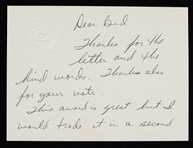 Dear Bud
Thanks for the
letter and the
kind words. Thanks also
for your vote.
This award is great but I
would trade it in a second